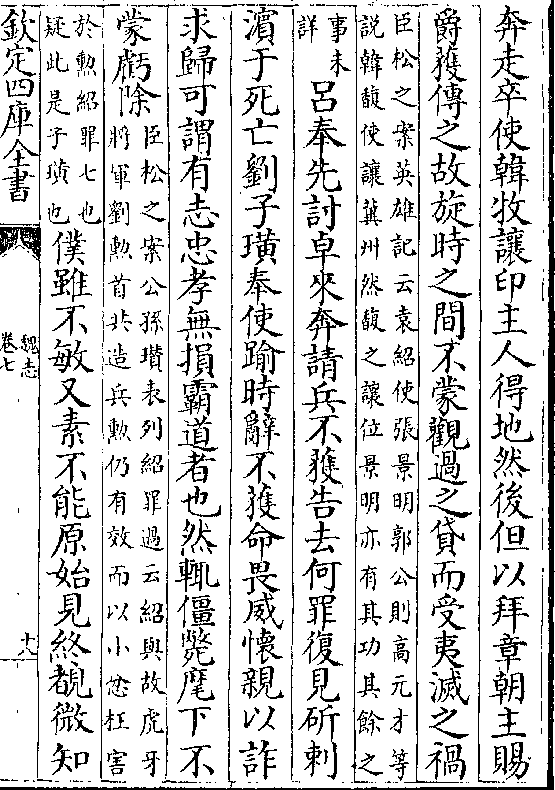 奔走卒使韓牧讓印主人得地然後但以拜章朝主賜
爵獲傳之故旋時之間不蒙觀過之貸而受夷滅之禍
臣松之案英雄記云袁紹使張景明郭公則高元才等
說韓馥使讓冀州然馥之讓位景明亦有其功其餘之
事未
詳
吕奉先討卓來奔請兵不獲告去何罪復見斫刺
濵于死亡劉子璜奉使踰時辭不獲命畏威懷親以詐
求歸可謂有志忠孝無損霸道者也然輒僵斃麾下不
蒙虧除
臣松之案公孫瓚表列紹罪過云紹與故虎牙
將軍劉勲首共造兵勲仍有效而以小忿枉害
於勲紹罪七也
疑此是子璜也
僕雖不敏又素不能原始見終覩微知
欽定四庫全書
魏志
卷七
十八